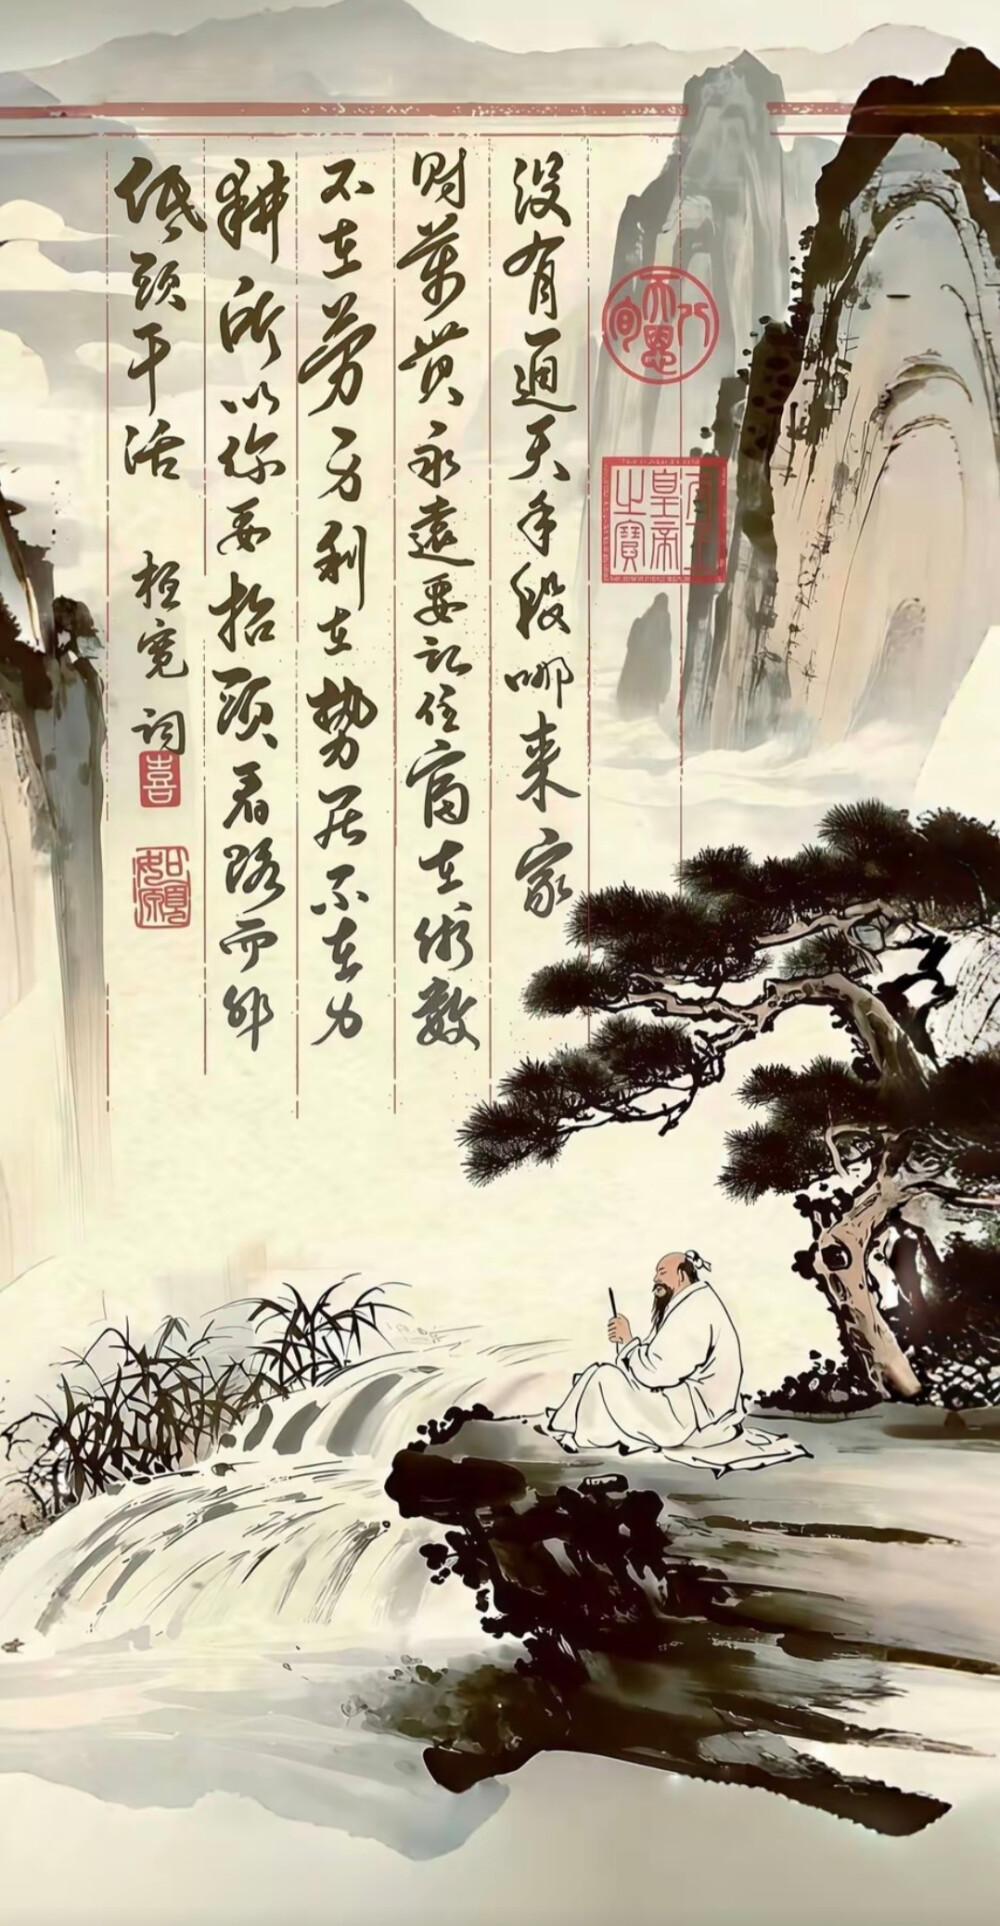 没有通天手段哪来家
财万贯永远要记住富在術数
不在劳身利在势居不在力
耕所以你要抬頭看路而非
低頭干活 桓宽词
喜
如願
皇帝之寶